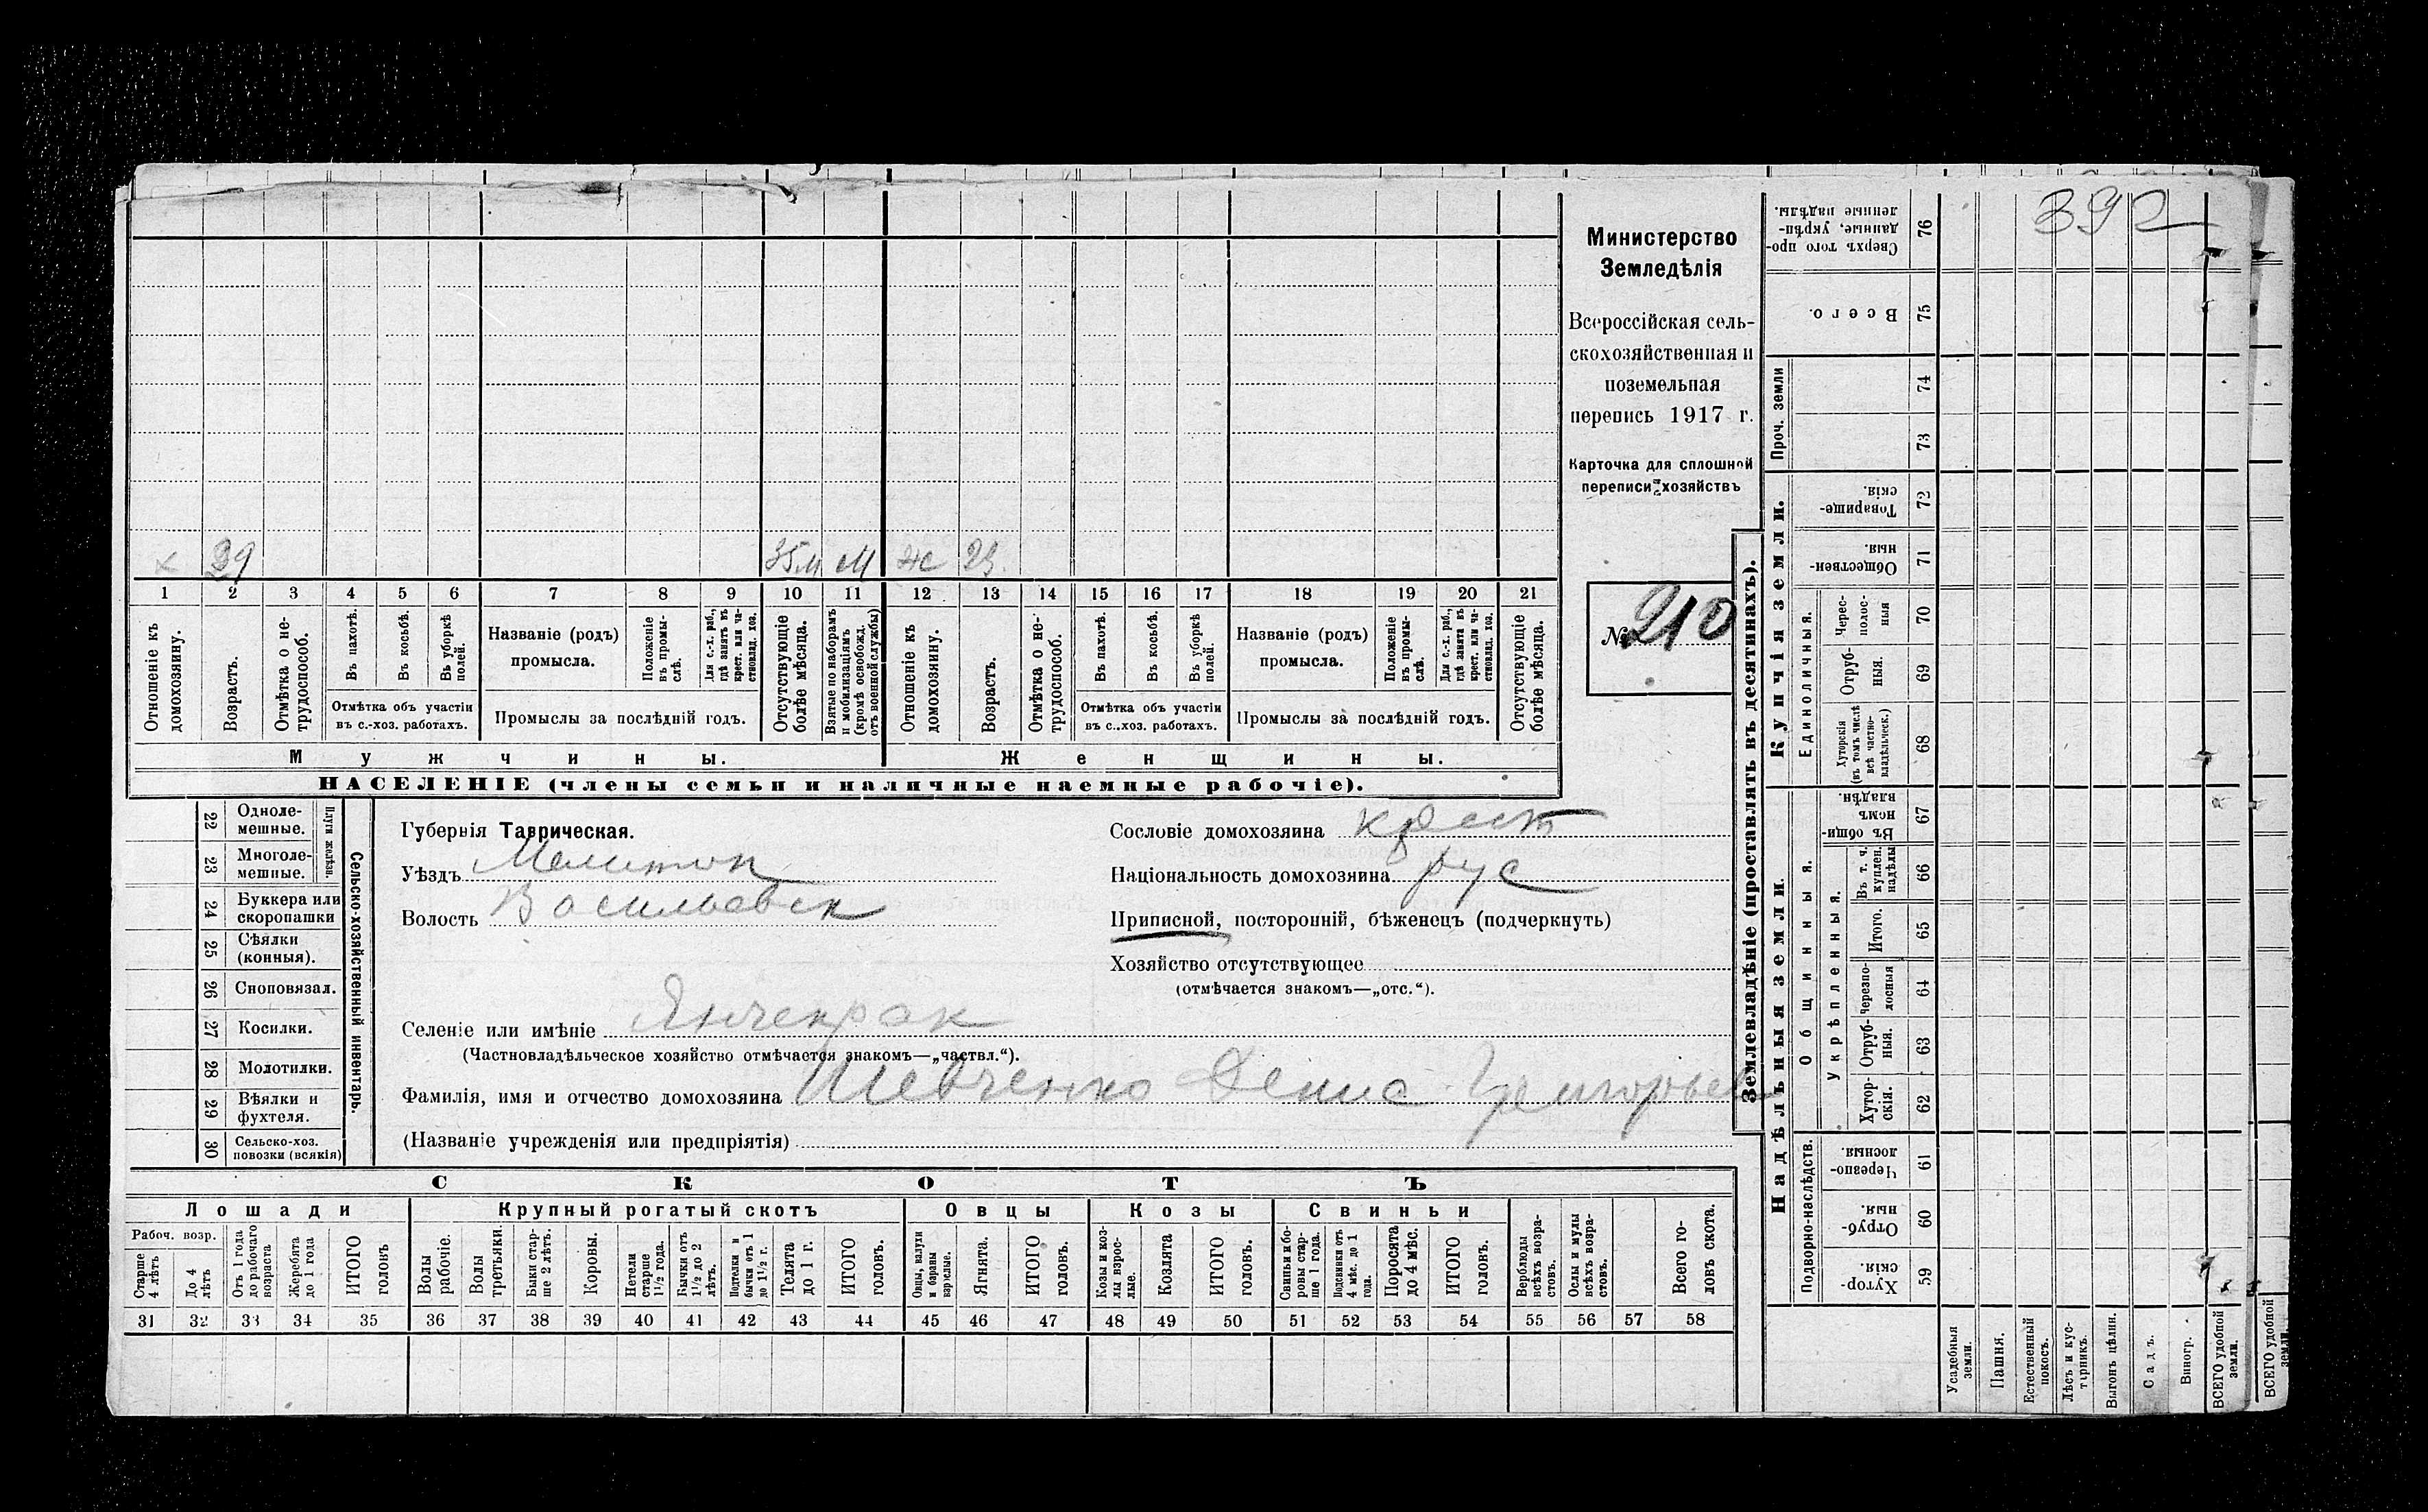 392
Министерство
Земледѣлія
Всероссійская сель-
скохозяйственная и
поземельная
перепись 1917 г.
Карточка для сплошной
переписи хозяйствъ
№ 210
х 29 М ж 23
1 2 3 4 5 6 7 8 9 10 11 12 13 14 15 16 17 18 19 20 21
Отношеніе къ домохозяину.
Возрастъ.
Отмѣтка о не-трудоспособ.
Въ пахотѣ.
Въ косьбѣ.
Въ уборкѣ полей.
Отмѣтка объ участіи
въ с.-хоз. работахъ.
Названіе (родъ)
промысла.
Положеніе въ промы-слѣ.
Для с.-х. раб., гдѣ занятъ въ крест. или ча-стновлад. хоз.
Промыслы за послѣдній годъ.
Отсутствующіе болѣе мѣсяца.
Взятые по наборамъ и мобилизаціямъ (кромѣ освобожд. отъ военной службы)
Отношеніе къ домохозяину.
Возрастъ.
Отмѣтка о не-трудоспособ.
Въ пахотѣ.
Въ косьбѣ.
Въ уборкѣ полей.
Отмѣтка объ участіи
въ с.-хоз. работахъ.
Названіе (родъ)
промысла.
Положеніе въ промы-слѣ.
Для с.-х. раб., гдѣ занята въ крест. или ча-стновлад. хоз.
Промыслы за послѣдній годъ.
Отсутствующіе болѣе мѣсяца.
Мужчины. Женщины.
НАСЕЛЕНІЕ (члены семьи и наличные наемные рабочіе).
Сельско-хозяйственный инвентарь.
Плуги желѣзн.
22 Одноле-мешные.
23 Многоле-мешные.
24 Буккера или скоропашки
25 Сѣялки (конныя).
26 Сноповязал.
27 Косилки.
28 Молотилки.
29 Вѣялки и фухтеля.
30 Сельско-хоз. повозки (всякія)
Губернія Таврическая.
Уѣздъ Мелитоп
Волость Васильевск
Сословіе домохозяина крест
Національность домохозяина рус
Приписной, посторонній, бѣженецъ (подчеркнуть)
Хозяйство отсутствующее
(отмѣчается знакомъ—„отс.“).
Селеніе или имѣніе Янчекрак
(Частновладѣльческое хозяйство отмѣчается знакомъ—„частвл.“).
Фамилія, имя и отчество домохозяина Шевченко Денис Григорьев
(Названіе учрежденія или предпріятія)
СКОТЪ
Лошади Крупный рогатый скотъ Овцы Козы Свиньи
Рабоч. возр.
Старше 4 лѣтъ
До 4 лѣтъ
Отъ 1 года до рабочаго возраста
Жеребята до 1 года
ИТОГО головъ
Волы рабочіе.
Волы третьяки.
Быки стар-ше 2 лѣтъ.
Коровы.
Нетели старше 1½ года.
Бычки отъ 1½ до 2 лѣтъ.
Подтелки и бычки отъ 1 до 1½ г.
Телята до 1 г.
ИТОГО головъ.
Овцы, валухи и бараны взрослые.
Ягнята.
ИТОГО головъ.
Козы и коз-лы взрос-лые.
Козлята
ИТОГО головъ.
Свиньи и бо-ровы стар-ше 1 года.
Подсвинки отъ 4 мѣс. до 1 года.
Поросята до 4 мѣс.
ИТОГО головъ.
Верблюды всѣхъ возра-стовъ.
Ослы и мулы всѣхъ возра-стовъ.
Всего го-ловъ скота.
31 32 33 34 35 36 37 38 39 40 41 42 43 44 45 46 47 48 49 50 51 52 53 54 55 56 57 58
Землевладѣніе (проставлять въ десятинахъ).
Надѣльныя земли.
Купчія земли.
Проч. земли
Подворно-наслѣдств.
Общинныя.
Укрѣпленныя.
Единоличныя.
Сверхъ того про-данные, укрѣп-ленные надѣлы. 76
Всего. 75
74
73
Товарище-скія. 72
Обществен-ныя. 71
Черес-полос-ныя 70
Отруб-ныя. 69
Хуторскія (въ томъ числѣ всѣ частно-владѣльческ.) 68
Въ общи-номъ владѣн. 67
Въ т. ч. куплен. надѣлы 66
Итого. 65
Черезпо-лосныя 64
Отруб-ныя. 63
Хутор-скія. 62
Черезпо-лосныя. 61
Отруб-ныя. 60
Хутор-скія. 59
Усадебныя земли.
Пашня.
Естественный покосъ.
Лѣсъ и кус-тарникъ.
Выгонъ цѣлин.
Садъ.
Виногр.
ВСЕГО удобной земли.
ВСЕГО удобной земли.